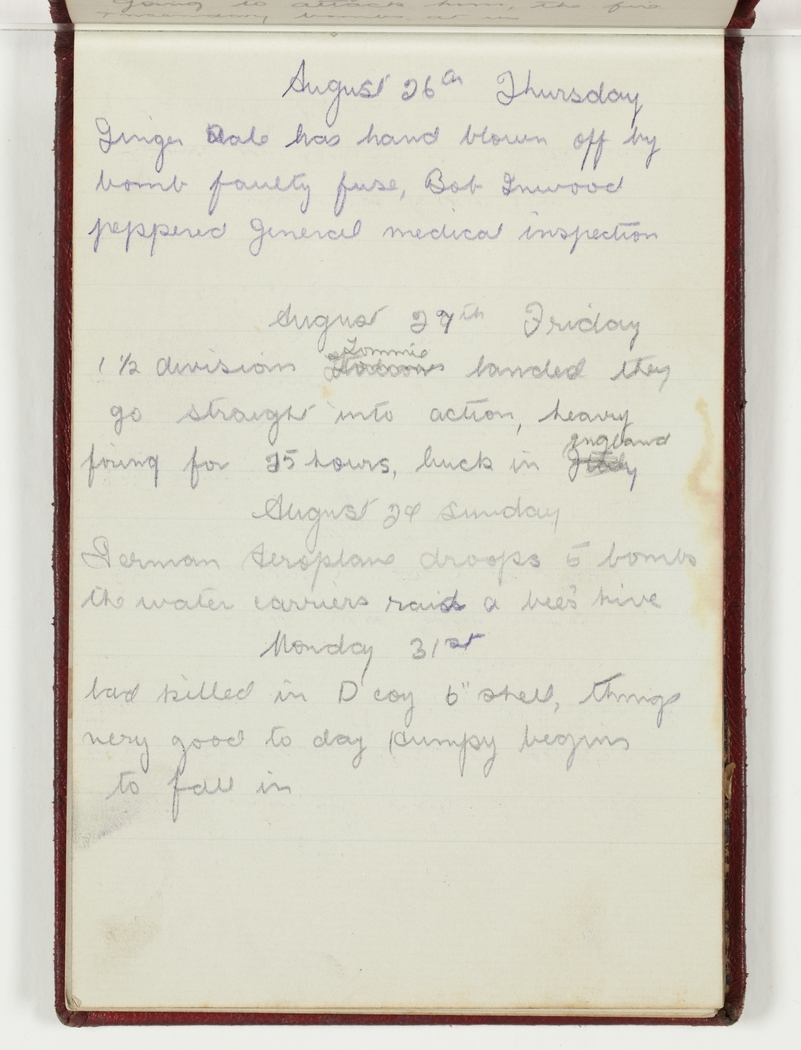 August 26th Thursday
Ginger Dale has hand blown off by
bomb faulty fuse, Bob Inwood
peppered General medical inspection
August 27th Friday
Tommie
1 ½ division landed they
go straight into action, heavy
england
firing for 25 hours, buck in
August 29 Sunday
German Aeroplane droops 5 bombs
the water carriers raids a bee's hive
Monday 31st
lad killed in D coy 6" shell, things
very good to day Pumpy begins
to fall in